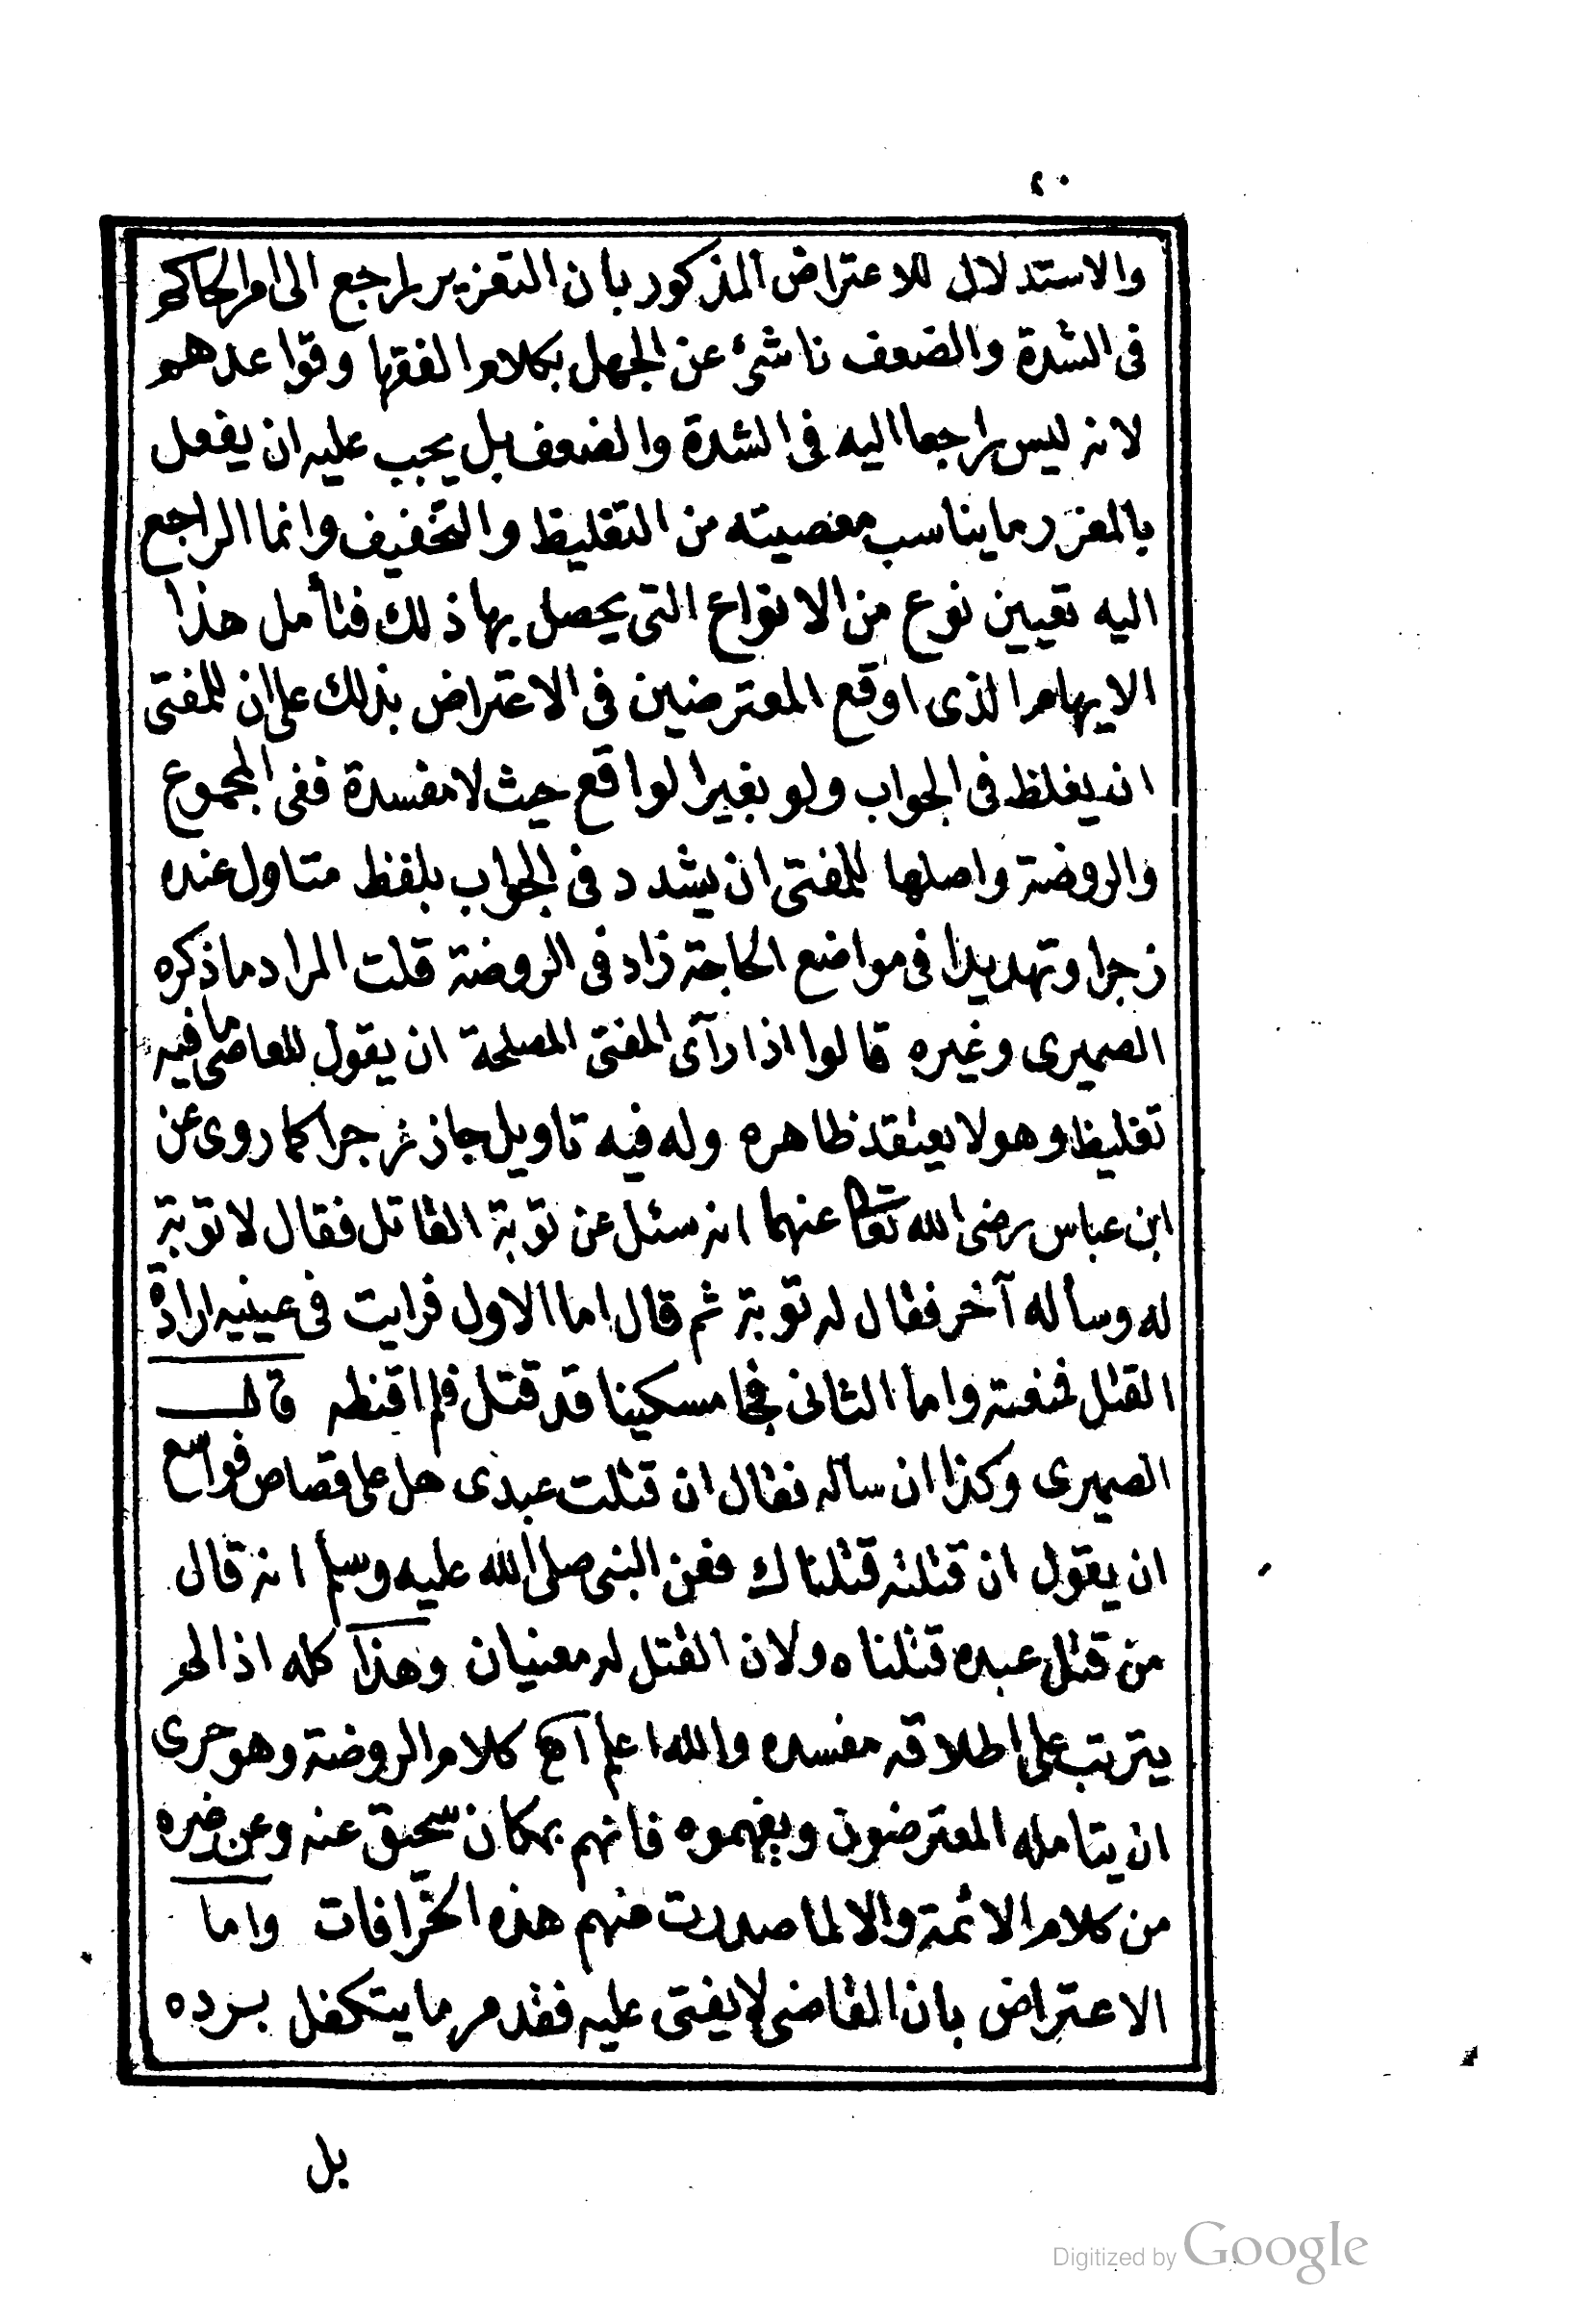 ٢٠
والاستدلال للاعتراض المذكور بان التعزير لمرجع الى امر الحاكم
فى الشدة والضعف ناشئ عن الجهل بكلام الفقها وقواعدهم
لانه ليس راجعا اليه فى الشدة والضعف بل يجب عليه ان يفعل
بالمعزر ما يناسب معصيته من التغليظ والتخفيف وانما الراجع
اليه تعيين نوع من الانواع التى يحصل بها ذلك فتأمل هذا
الايهام الذى اوقع المعترضين فى الاعتراض بذلك على ان للمفتى
ان يغلظ فى الجواب ولو بغير الواقع حيث لا مفسدة ففى المجموع
والروضة واصلها للمفتى ان يشدد فى الجواب بلفظ متاول عنده
زجرا وتهديدا فى مواضع الحاجة زاد فى الروضة قلت المراد ما ذكره
الصميرى وغيره قالوا اذا رآى المفتى المصلحة ان يقول للعاصى ما فيه
تغليظ وهو لا يعتقد ظاهره وله فيه تاويل جاز زجرا كما روى عن
ابن عباس رضى الله تعالى عنهما انه سئل عن توبة القاتل فقال لا توبة
له وسأله آخر فقال له توبة ثم قال اما الاول فرايت فى عينيه ارادة
القتل فمنعته واما الثانى فجا مسكينا قد قتل فلم اقنطه قال
الصميرى وكذا ان ساله فقال ان قتلت عبدى هل على قصاص فواسع
ان يقول ان قتلته قتلناك فعن النبى صلى الله عليه وسلم انه قال
من قتل عبده قتلناه ولان القتل له معنيان وهذا كله اذا لم
يترتب على اطلاقه مفسده والله اعلم اهـ كلام الروضة وهو حرى
ان يتامله المعترضون ويفهموه فانهم بمكان سحيق عنه وعن غيره
من كلام الائمة والا لما صدرت منهم هذه الخرافات واما
الاعتراض بان القاضى لا يفتى عليه فقد مر ما يتكفل برده
بل
Digitized by Google